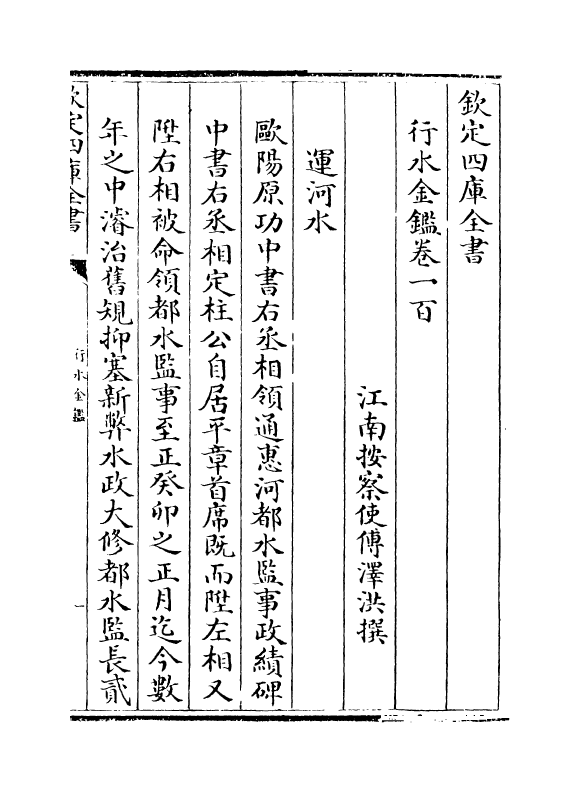 欽定四庫全書
行水金鑑卷一百
江南按察使傅澤洪撰
運河水
歐陽原功中書右丞相領通惠河都水監事政績碑
中書右丞相定柱公自居平章首席既而陞左相又
陞右相被命領都水監事至正癸卯之正月迄今數
年之中濬治舊規抑塞新弊水政大修都水監長貳
欽定四庫全書
行水金鑑
一